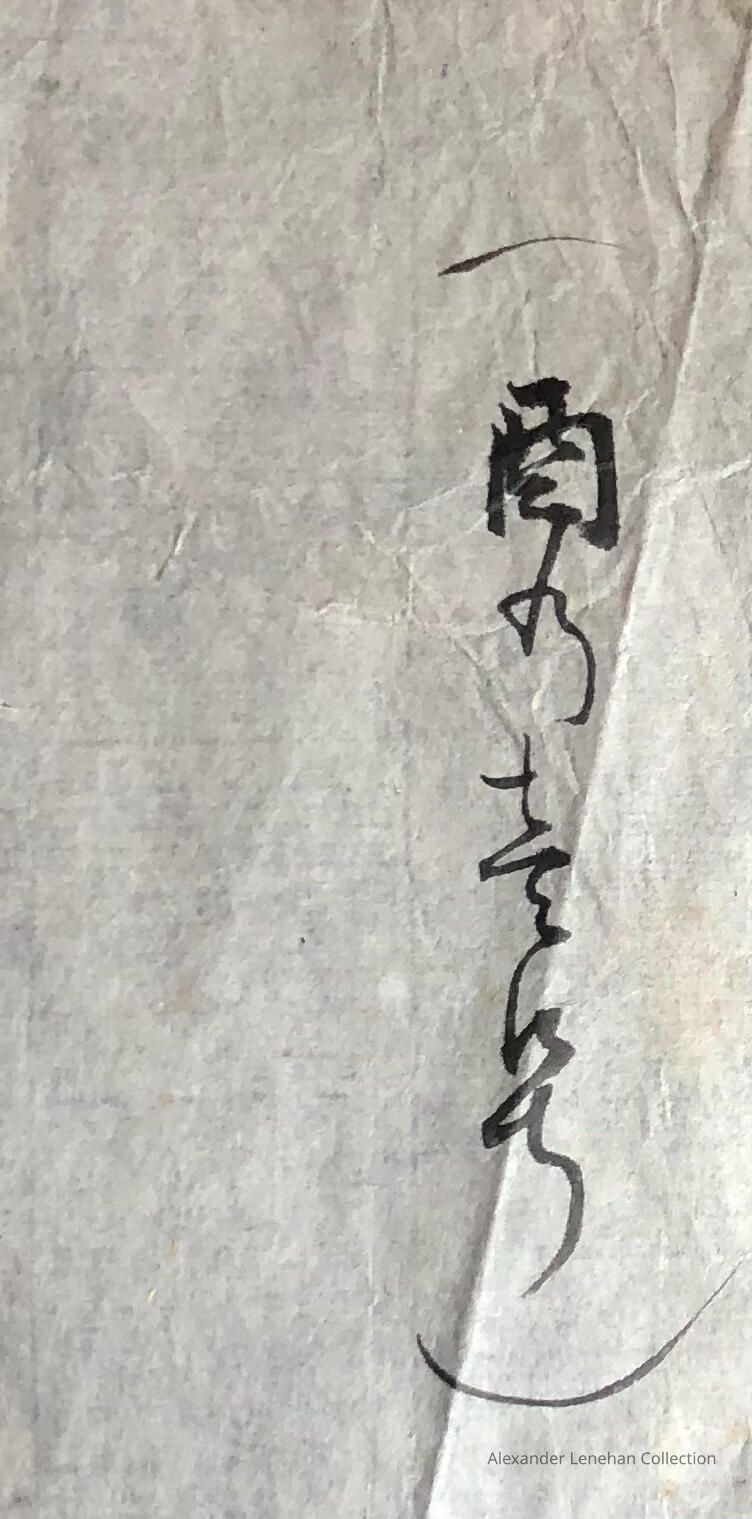 酉乃壱号
Alexander Lenehan Collection